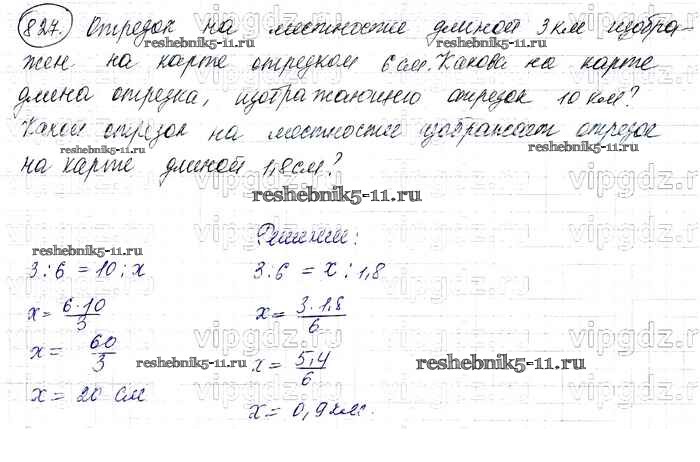 827. Отрезок на местности длиной 3 км изобра-
жен на карте отрезком 6 см. Какова на карте
длина отрезка, изображающего отрезок 10 км?
Какой отрезок на местности изображает отрезок
на карте длиной 1,8 см?
Решение:
3 : 6 = 10 : x
x = 6·10/3
x = 60/3
x = 20 см
3 : 6 = x : 1,8
x = 3·1,8/6
x = 5,4/6
x = 0,9 км.
reshebnik5-11.ru
reshebnik5-11.ru
reshebnik5-11.ru
reshebnik5-11.ru
reshebnik5-11.ru
reshebnik5-11.ru
reshebnik5-11.ru
reshebnik5-11.ru
vipgdz.ru